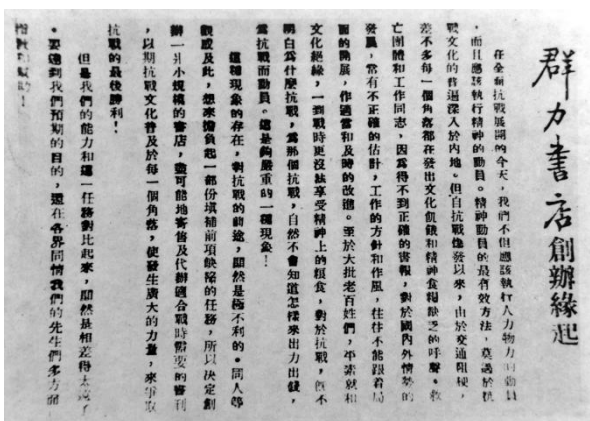 群力書店創辦緣起
在全面抗戰展開的今天，我們不但應該執行人力物力的動員
，而且應該執行精神的動員。精神動員的最有效方法，莫過於抗
戰文化的普遍深入於內地。但自抗戰爆發以來，由於交通阻梗，
差不多每一個角落都在發出文化飢饿和精神食糧缺乏的呼聲。救
亡團體和工作同志，因爲得不到正確的書報，對於國內外情勢的
發展，常有不正確的估計，工作的方針和作風，往往不能跟着局
面的開展，作適當和及時的改進。至於大批老百姓們，平素就和
文化絕緣，一到戰時更沒法享受精神上的粮食，對於抗戰，旣不
明白爲什麼抗戰，爲那個抗戰，自然不會知道怎樣來出力出錢，
爲抗戰而動員。這是夠嚴重的一種現象！
這種現象的存在，對抗戰的前途，顯然是極不利的。同人等
觀感及此，想來擔負起一部份填補前項缺陷的任務，所以決定創
辦一爿小規模的書店，盡可能地寄售及代辦適合戰時需要的書刊
，以期抗戰文化普及於每一個角落，使發生廣大的力量，來爭取
抗戰的最後勝利！
但是我們的能力和這一任務對比起來，顯然是相差得太遠了
。要達到我們預期的目的，還在各界同情我們的先生們多方面
指教和幫助！